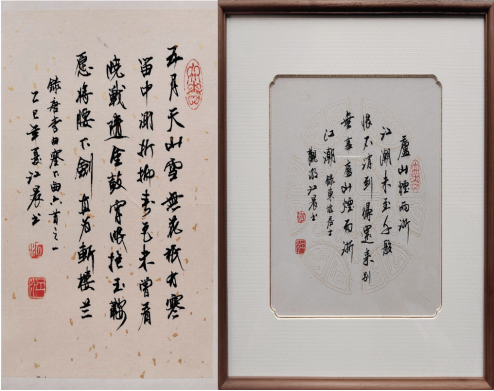 五月天山雪無花祇有寒
笛中聞折柳春色未曾看
曉戰隨金鼓宵眠抱玉鞍
愿將腰下劍直為斬樓蘭
錄唐李白塞下曲六首之一
乙巳年夏江晨書
廬山煙雨浙
江潮未至千般
恨不消到得還來別
無事廬山煙雨浙
江潮 錄東坡居士
觀潮江晨書